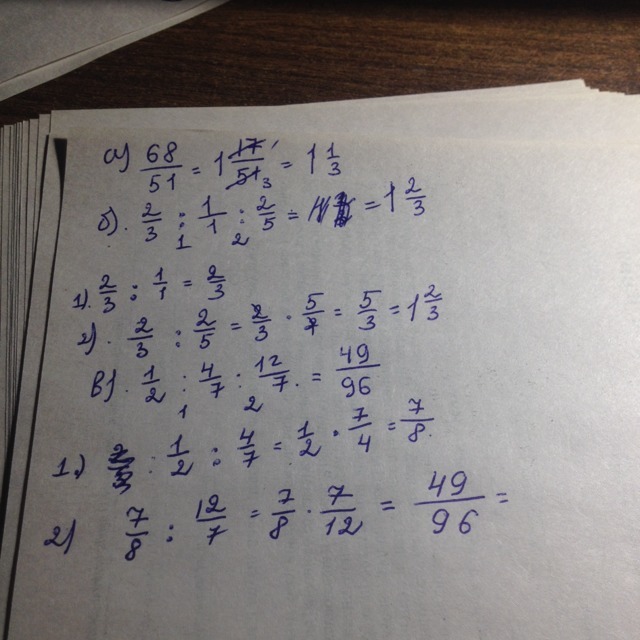 а) 68/51 = 1 17/51 = 1 1/3
1 3
б). 2/3 : 1/1 : 2/5 = = 1 2/3
1 2
1). 2/3 : 1/1 = 2/3
2). 2/3 : 2/5 = 2/3 · 5/2 = 5/3 = 1 2/3
в). 1/2 : 4/7 : 12/7. = 49/96
1 2
1.) : 1/2 : 4/7 = 1/2 · 7/4 = 7/8.
2) 7/8 : 12/7 = 7/8 · 7/12 = 49/96 =